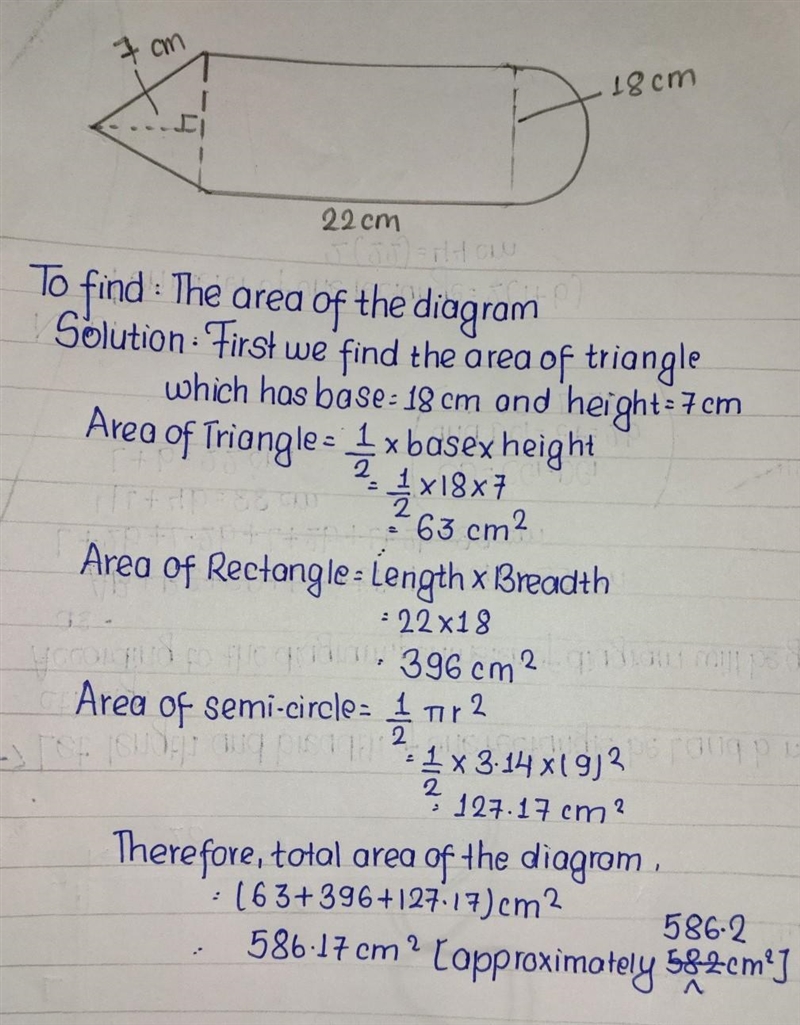 7 cm
18cm
22cm
To find: The area of the diagram
Solution: First we find the area of triangle
which has base = 18 cm and height = 7 cm
Area of Triangle = 1/2 × base × height
= 1/2 × 18 × 7
= 63 cm²
Area of Rectangle = Length × Breadth
= 22 × 18
= 396 cm²
Area of semi-circle = 1/2 πr²
= 1/2 × 3.14 × (9)²
= 127.17 cm²
Therefore, total area of the diagram,
= (63+396+127.17) cm²
586.2
= 586.17 cm² [approximately 582 cm²]